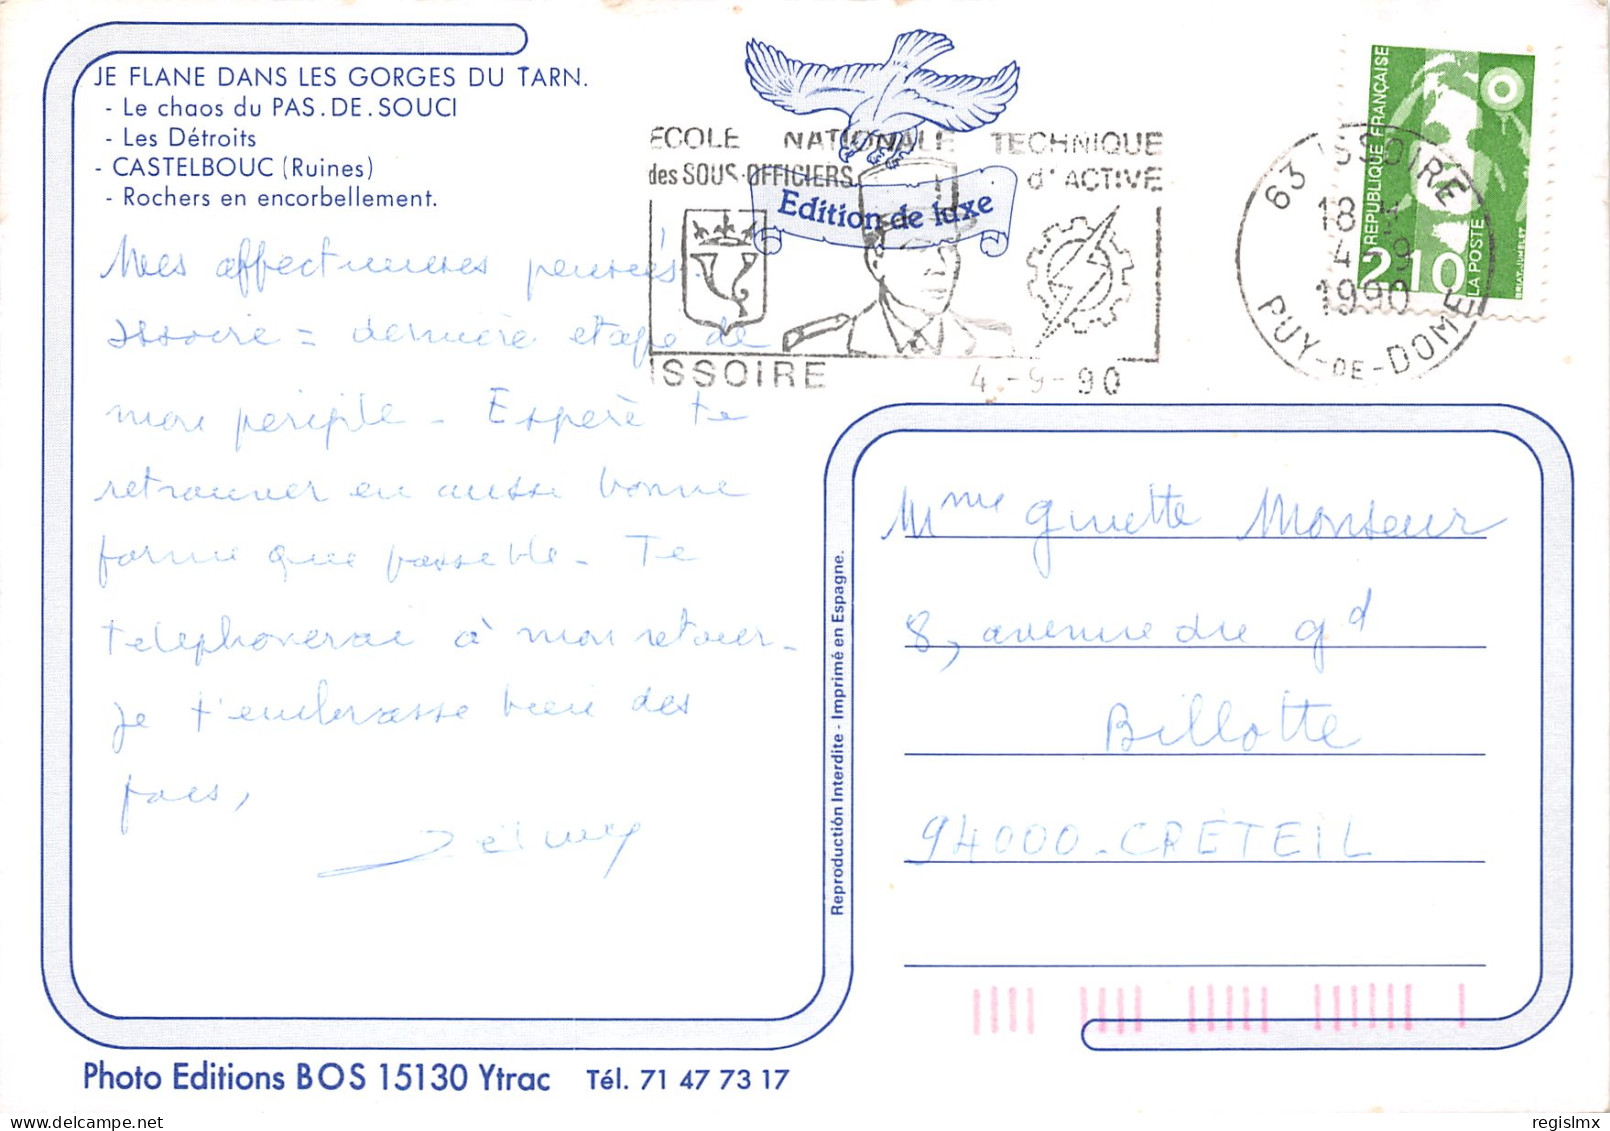 JE FLANE DANS LES GORGES DU TARN.
- Le chaos du PAS.DE.SOUCI
- Les Détroits
- CASTELBOUC (Ruines)
- Rochers en encorbellement.
Mes affectueuses pensées.
Issoire = dernière etape de
mon periple - Espère te
retrouver en aussi bonne
forme que possible - Te
telephonerai à mon retour -
Je t'embrasse bien des
fois,
ECOLE NATIONALE TECHNIQUE
des SOUS-OFFICIERS d'ACTIVE
Edition de luxe
ISSOIRE 4-9-90
63 ISSOIRE
18 H
4-9
1990
PUY-DE-DOME
REPUBLIQUE FRANÇAISE
2,10
LA POSTE
BRIAT-JUMELET
Mme Ginette Monseur
8, avenue du gd
Billotte
94000 - CRETEIL
Reproduction Interdite - Imprimé en Espagne.
Photo Editions BOS 15130 Ytrac Tél. 71 47 73 17
regislmx